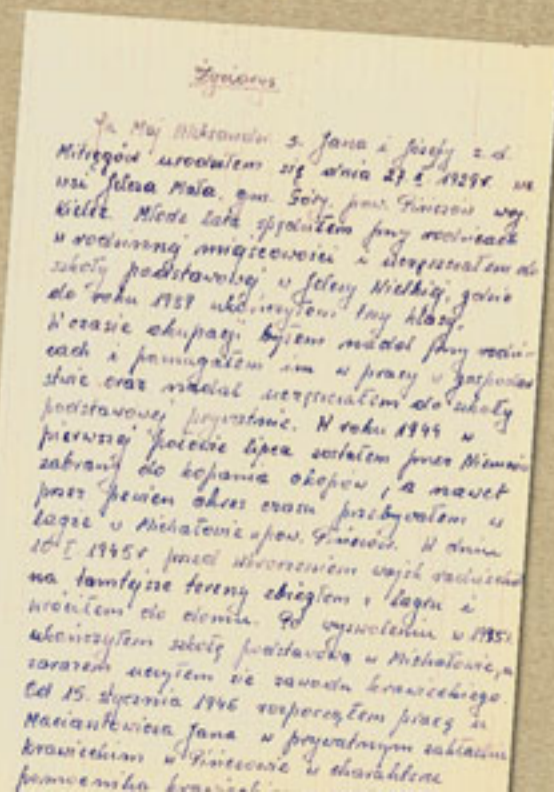 Życiorys
Ja Maj Aleksander s. Jana i Józefy z d.
Mitręgów urodziłem się dnia 27 I 1929 r. we
wsi Jelcza Mała, gm. Góry, pow. Pińczów woj.
Kielce. Młode lata spędziłem przy rodzicach
w rodzinnej miejscowości i uczęszczałem do
szkoły podstawowej w Jelczy Wielkiej, gdzie
do roku 1939 ukończyłem trzy klasy.
W czasie okupacji byłem nadal przy rodzi-
cach i pomagałem im w pracy w gospodar
stwie oraz nadal uczęszczałem do szkoły
podstawowej prywatnie. W roku 1944 w
pierwszej połowie lipca zostałem przez Niemców
zabrany do kopania okopów, a nawet
przez pewien okres czasu przebywałem w
łagrze w Michałowie pow. Pińczów. W dniu
I 1945 r przed wkroczeniem wojsk radzieckich
na tamtejsze tereny zbiegłem z łagru i
wróciłem do domu. Po wyzwoleniu w 1945 r.
ukończyłem szkołę podstawową w Michałowie, a
zarazem uczyłem się zawodu krawieckiego.
Od 15. stycznia 1946 rozpocząłem pracę u
Jana w prywatnym zakładzie
krawieckim w Pińczowie w charakterze
pomocnika